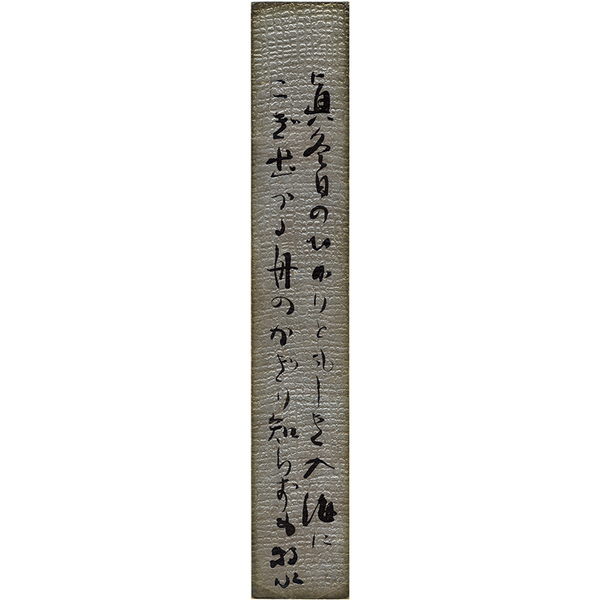 眞冬日のひかりともしき入海に
こぎ出づる舟のかぎり知らずも